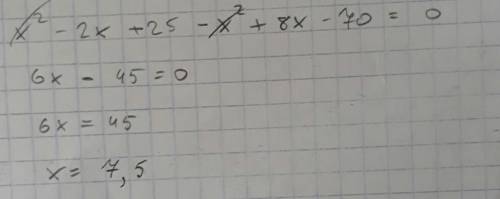 x² - 2x + 25 - x² + 8x - 70 = 0
6x - 45 = 0
6x = 45
x = 7,5